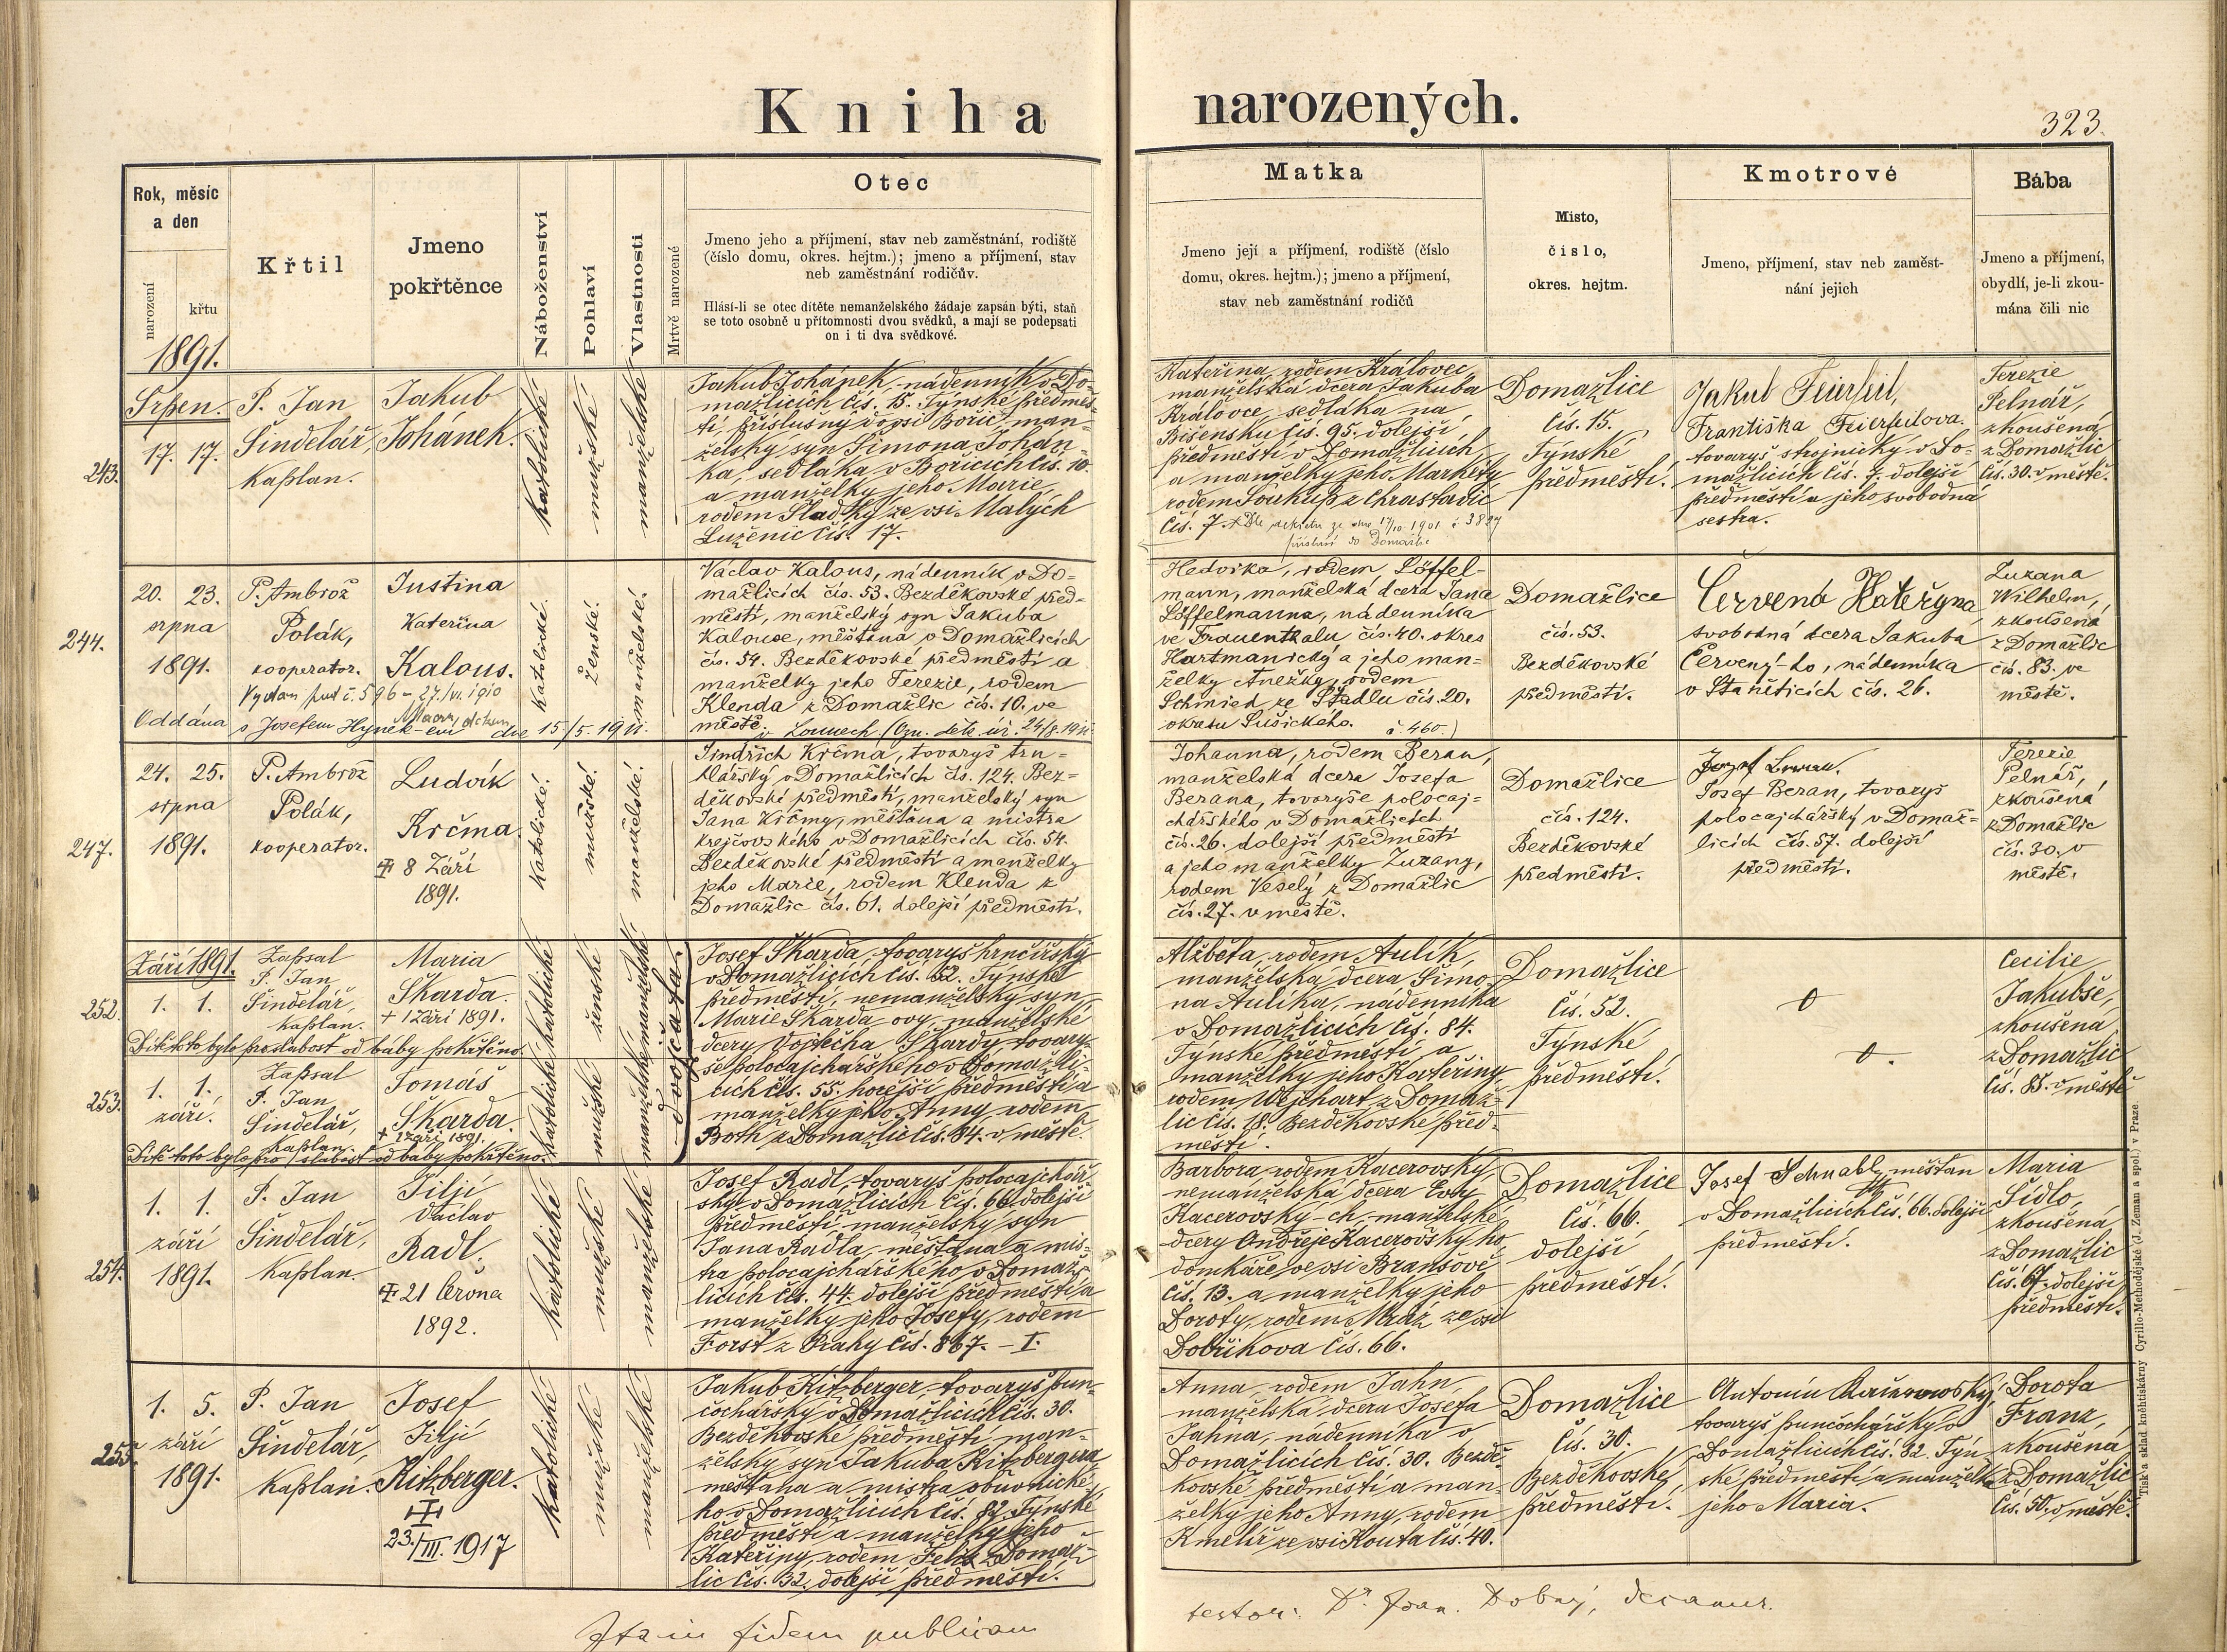 Kniha narozených.
323.
Rok, měsíc
a den
narození
křtu
Křtil
Jmeno
pokřtěnce
Náboženství
Pohlaví
Vlastnosti
Mrtvě narozené
Otec
Jmeno jeho a příjmení, stav neb zaměstnání, rodiště
(číslo domu, okres. hejtm.); jmeno a příjmení, stav
neb zaměstnání rodičův.
Hlásí-li se otec dítěte nemanželského žádaje zapsán býti, staň
se toto osobně u přítomnosti dvou svědků, a mají se podepsati
on i ti dva svědkové.
Matka
Jmeno její a příjmení, rodiště (číslo
domu, okres. hejtm.); jmeno a příjmení,
stav neb zaměstnání rodičů
Misto,
čislo,
okres. hejtm.
Kmotrové
Jmeno, příjmení, stav neb zaměst-
nání jejich
Bába
Jmeno a příjmení,
obydlí, je-li zkou-
mána čili nic
1891.
243.
Srpen.
17. 17.
P. Jan
Šindelář,
kaplan.
Jakub
Johánek.
katolické
mužské
manželské
Jakub Johánek, nádenník v Do-
mažlicích čís. 15. Týnské předměs-
tí, příslušný do psi Bořic, man-
želský syn Šimona Johán-
ka, sedláka v Bořicích čís. 10.
a manželky jeho Marie,
rodem Sladký ze vsi Malých
Luženic čís. 17.
Kateřina, rodem Královec,
manželská dcera Jakuba
Královce, sedláka na
Bišensku čís. 95. dolejší
předměstí v Domažlicích,
a manželky jeho Markéty,
rodem Soukup z Chrastavic
čís. 7. Dle dekretu ze dne 17/10. 1901 č 3827
příslusí do Domažlic
Domažlice
čís. 15.
Týnské
předměstí.
Jakub Feierfeil,
Františka Feierfeilova
tovaryš strojnický v Do-
mažlicích čís. 7. dolejší
předměstí a jeho svobodná
sestra.
Terezie
Pelnář,
zkoušená
z Domažlic
čís. 30. v městě.
244.
20. 23.
srpna
1891.
P. Ambrož
Polák,
kooperator.
Justina
Kateřina
Kalous.
Vydán pod č. 596 - 27./VI. 1910
Oddána s Josefem Hynek-em dne 15./5. 19
v Lounech
č. 460.)
katolické.
ženské.
manželské.
Václav Kalous, nádenník v Do-
mažlicích čís. 53. Bezděkovské před-
městí, manželský syn Jakuba
Kalouse, měštána v Domažlicích
čís. 54. Bezděkovské předměstí a
manželky jeho Terezie, rodem
Klenda z Domažlic čís. 10. ve
městě.
Hedvika, rodem Löffel-
mann, manželská dcera Jana
Löffelmanna, nádenníka
ve Frauenthalu čís. 40. okres
Hartmanický a jeho man-
želky Anežky, rodem
Schmied ze Stadlu čís. 20.
okresu Sušického.
Domažlice
čís. 53.
Bezděkovské
předměstí.
Červená Kateřyna,
svobodná dcera Jakuba
Červený-ho, nádenníka
v Staněticích čís. 26.
Zuzana
Wilhelm,
zkoušená
z Domažlic
čís. 83. ve
městě.
247.
24. 25.
srpna
1891.
P. Ambrož
Polák,
kooperator.
Ludvík
Krčma.
8 Září
1891.
katolické.
mužské.
manželské.
Jindřich Krčma, tovaryš tru-
hlářský v Domažlicích čís. 124. Bez-
děkovské předměstí, manželský syn
Jana Krčmy, měštána a mistra
krejčovského v Domažlicích čís. 54.
Bezděkovské předměstí a manželky
jeho Marie, rodem Klenda z
Domažlic čís. 61. dolejší předměstí.
Johanna, rodem Beran,
manželská dcera Josefa
Berana, tovaryše polocaj-
chářského v Domažlicích
čís. 26. dolejší předměstí
a jeho manželky Zuzany,
rodem Veselý z Domažlic
čís. 27. v městě.
Domažlice
čís. 124.
Bezděkovské
předměstí.
Josef Beran, tovaryš
polocajchářský v Domaž-
licích čís. 57. dolejší
předměstí.
Terezie
Pelnář,
zkoušená
z Domažlic
čís. 30. v
městě.
252.
Září 1891.
1. 1.
Zapsal
P. Jan
Šindelář,
kaplan.
Maria
Skarda.
+ 1 Září 1891.
Dítě toto bylo pro slabost od báby pokřtěno.
katolické
ženské
manželské
dvojčata.
Josef Skarda, tovaryš hrnčířský
v Domažlicích čís. 52. Týnské
předměstí, nemanželský syn
Marie Skarda-ovy, manželské
dcery Vojtěcha Skardy, tovary-
še polocajchářského v Domažli-
cích čís. 55. hořejší předměstí a
manželky jeho Anny, rodem
Both z Domažlic čís. 84. v městě.
Alžběta, rodem Aulík,
manželská dcera Šimo-
na Aulíka, nádenníka
v Domažlicích čís. 84.
Týnské předměstí a
manželky jeho Kateřiny,
rodem Wejhart z Domaž-
lic čís. 18. Bezděkovské před-
městí.
Domažlice
čís. 52.
Týnské
předměstí.
Cecilie
Jakubše,
zkoušená
z Domažlic
čís. 85. v městě
253.
1. 1.
září.
Zapsal
P. Jan
Šindelář,
kaplan.
Tomáš
Skarda.
+ 1 Září 1891.
Dítě toto bylo pro slabost od báby pokřtěno.
katolické
mužské
manželské
254.
1. 1.
září
1891.
P. Jan
Šindelář,
kaplan.
Jiljí
Václav
Radl.
21 Června
1892.
katolické
mužské
manželské
Josef Radl, tovaryš polocajchář-
ský v Domažlicích čís. 66. dolejší
předměstí, manželský syn
Jana Radla, měštana a mis-
tra polocajchářského v Domaž-
licích čís. 44. dolejší předměstí a
manželky jeho Josefy, rodem
Forst z Prahy čís. 867. - I.
Barbora, rodem Kacerovský,
nemanželská dcera Evy
Kacerovský-ch, manželské
dcery Ondřeje Kacerovský ho,
domkáře ve vsi Branšově
čís. 13. a manželky jeho
Doroty, rodem Mráz ze vsi
Dobřikova čís. 66.
Domažlice
čís. 66.
dolejší
předměstí.
Josef Schnabl, měštan
v Domažlicích čís. 66. dolejší
předměstí.
Maria
Sidlo,
zkoušená
z Domažlic
čís. 67. dolejší
předměstí.
255.
1. 5.
září
1891.
P. Jan
Šindelář,
kaplan.
Josef
Jiljí
Kitzberger.
23./III. 1917
katolické
mužské
manželské
Jakub Kitzberger, tovaryš pun-
čochářský v Domažlicích čís. 30.
Bezděkovské předměstí, man-
želský syn Jakuba Kitzbergera,
měštana a mistra obuvnické-
ho v Domažlicích čís. 82. Týnské
předměstí a manželky jeho
Kateřiny, rodem Felix z Domaž-
lic čís. 32. dolejší předměstí.
Anna, rodem Jahn,
manželská dcera Josefa
Jahna, nádenníka v
Domažlicích čís. 30. Bezdě-
kovské předměstí a man-
želky jeho Anny, rodem
Kmelíř ze vsi Kouta čís. 40.
Domažlice
čís. 30.
Bezděkovské
předměstí.
Antonín
tovaryš punčochářský v
Domažlicích čís. 32. Týn-
ské předměstí a manželka
jeho Maria.
Dorota
Franz,
zkoušená
z Domažlic
čís. 50. v městě.
Ita in fidem publicam
testor: Dr. Fran. Dobný, decanus.
Tisk a sklad knihtiskárny Cyrillo-Methodějské (J. Zeman a spol.) v Praze.